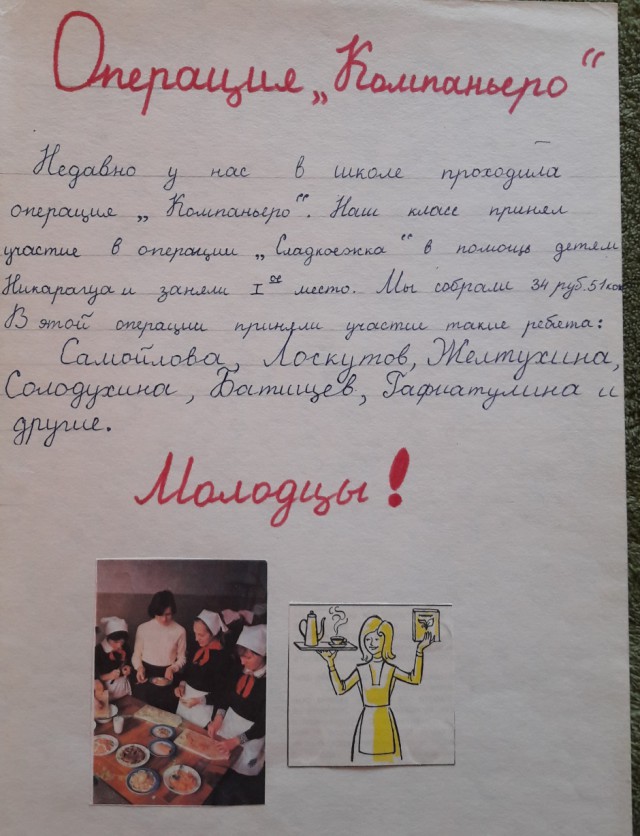 Операция „Компаньеро“
Недавно у нас в школе проходила
операция „Компаньеро“. Наш класс принял
участие в операции „Сладкоежка“ в помощь детям
Никарагуа и заняли I ое место. Мы собрали 34 руб. 51 коп
В этой операции приняли участие такие ребята:
Самойлова, Лоскутов, Желтухина,
Солодухина, Батищев, Гафиатулина и
другие.
Молодцы!